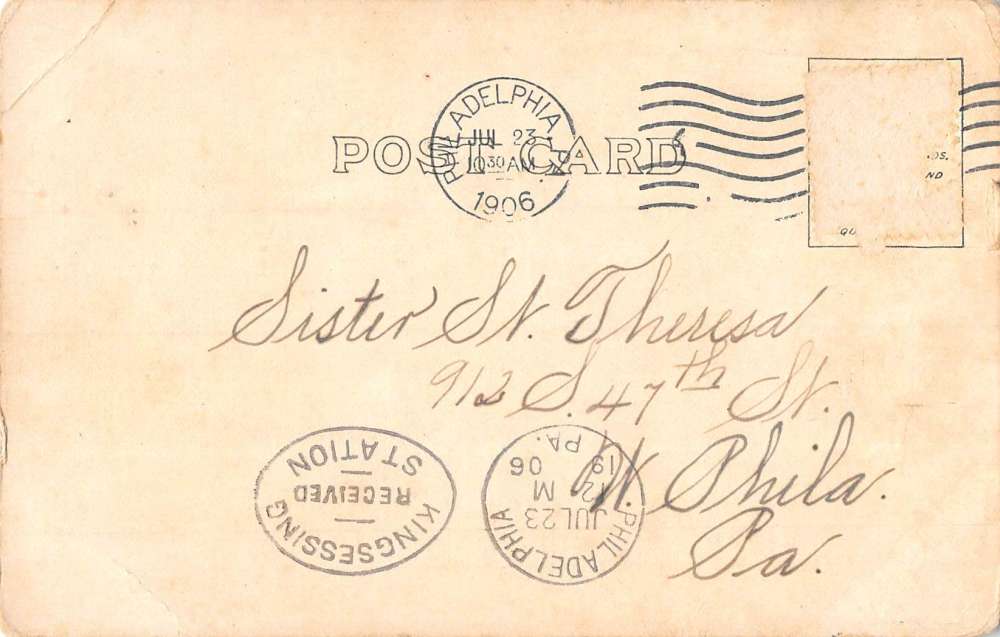 POST CARD
PHILADELPHIA, PA.
JUL 23
10 30 AM
1906
Sister St. Theresa
912 S. 47th St.
W. Phila.
Pa.
KINGSESSING
RECEIVED
STATION
PHILADELPHIA
JUL 23
12 M
19 06
PA.